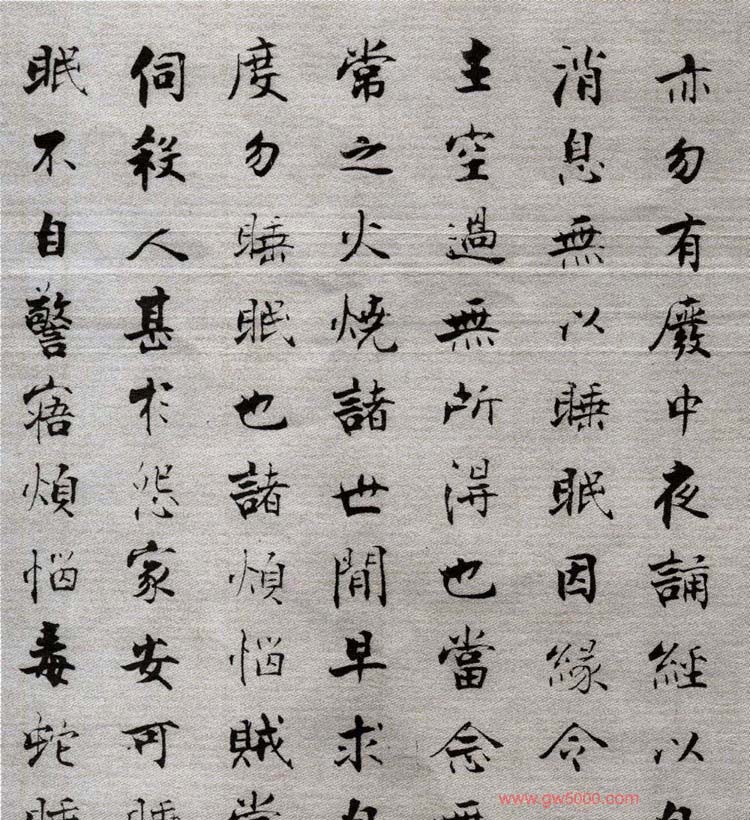 亦勿有廢中夜誦經以
消息無以睡眠因緣令
主空過無所得也當念
常之火燒諸世間早求
度勿睡眠也諸煩惱賊
伺殺人甚於怨家安可
眠不自警寤煩惱毒蛇
www.gw5000.com